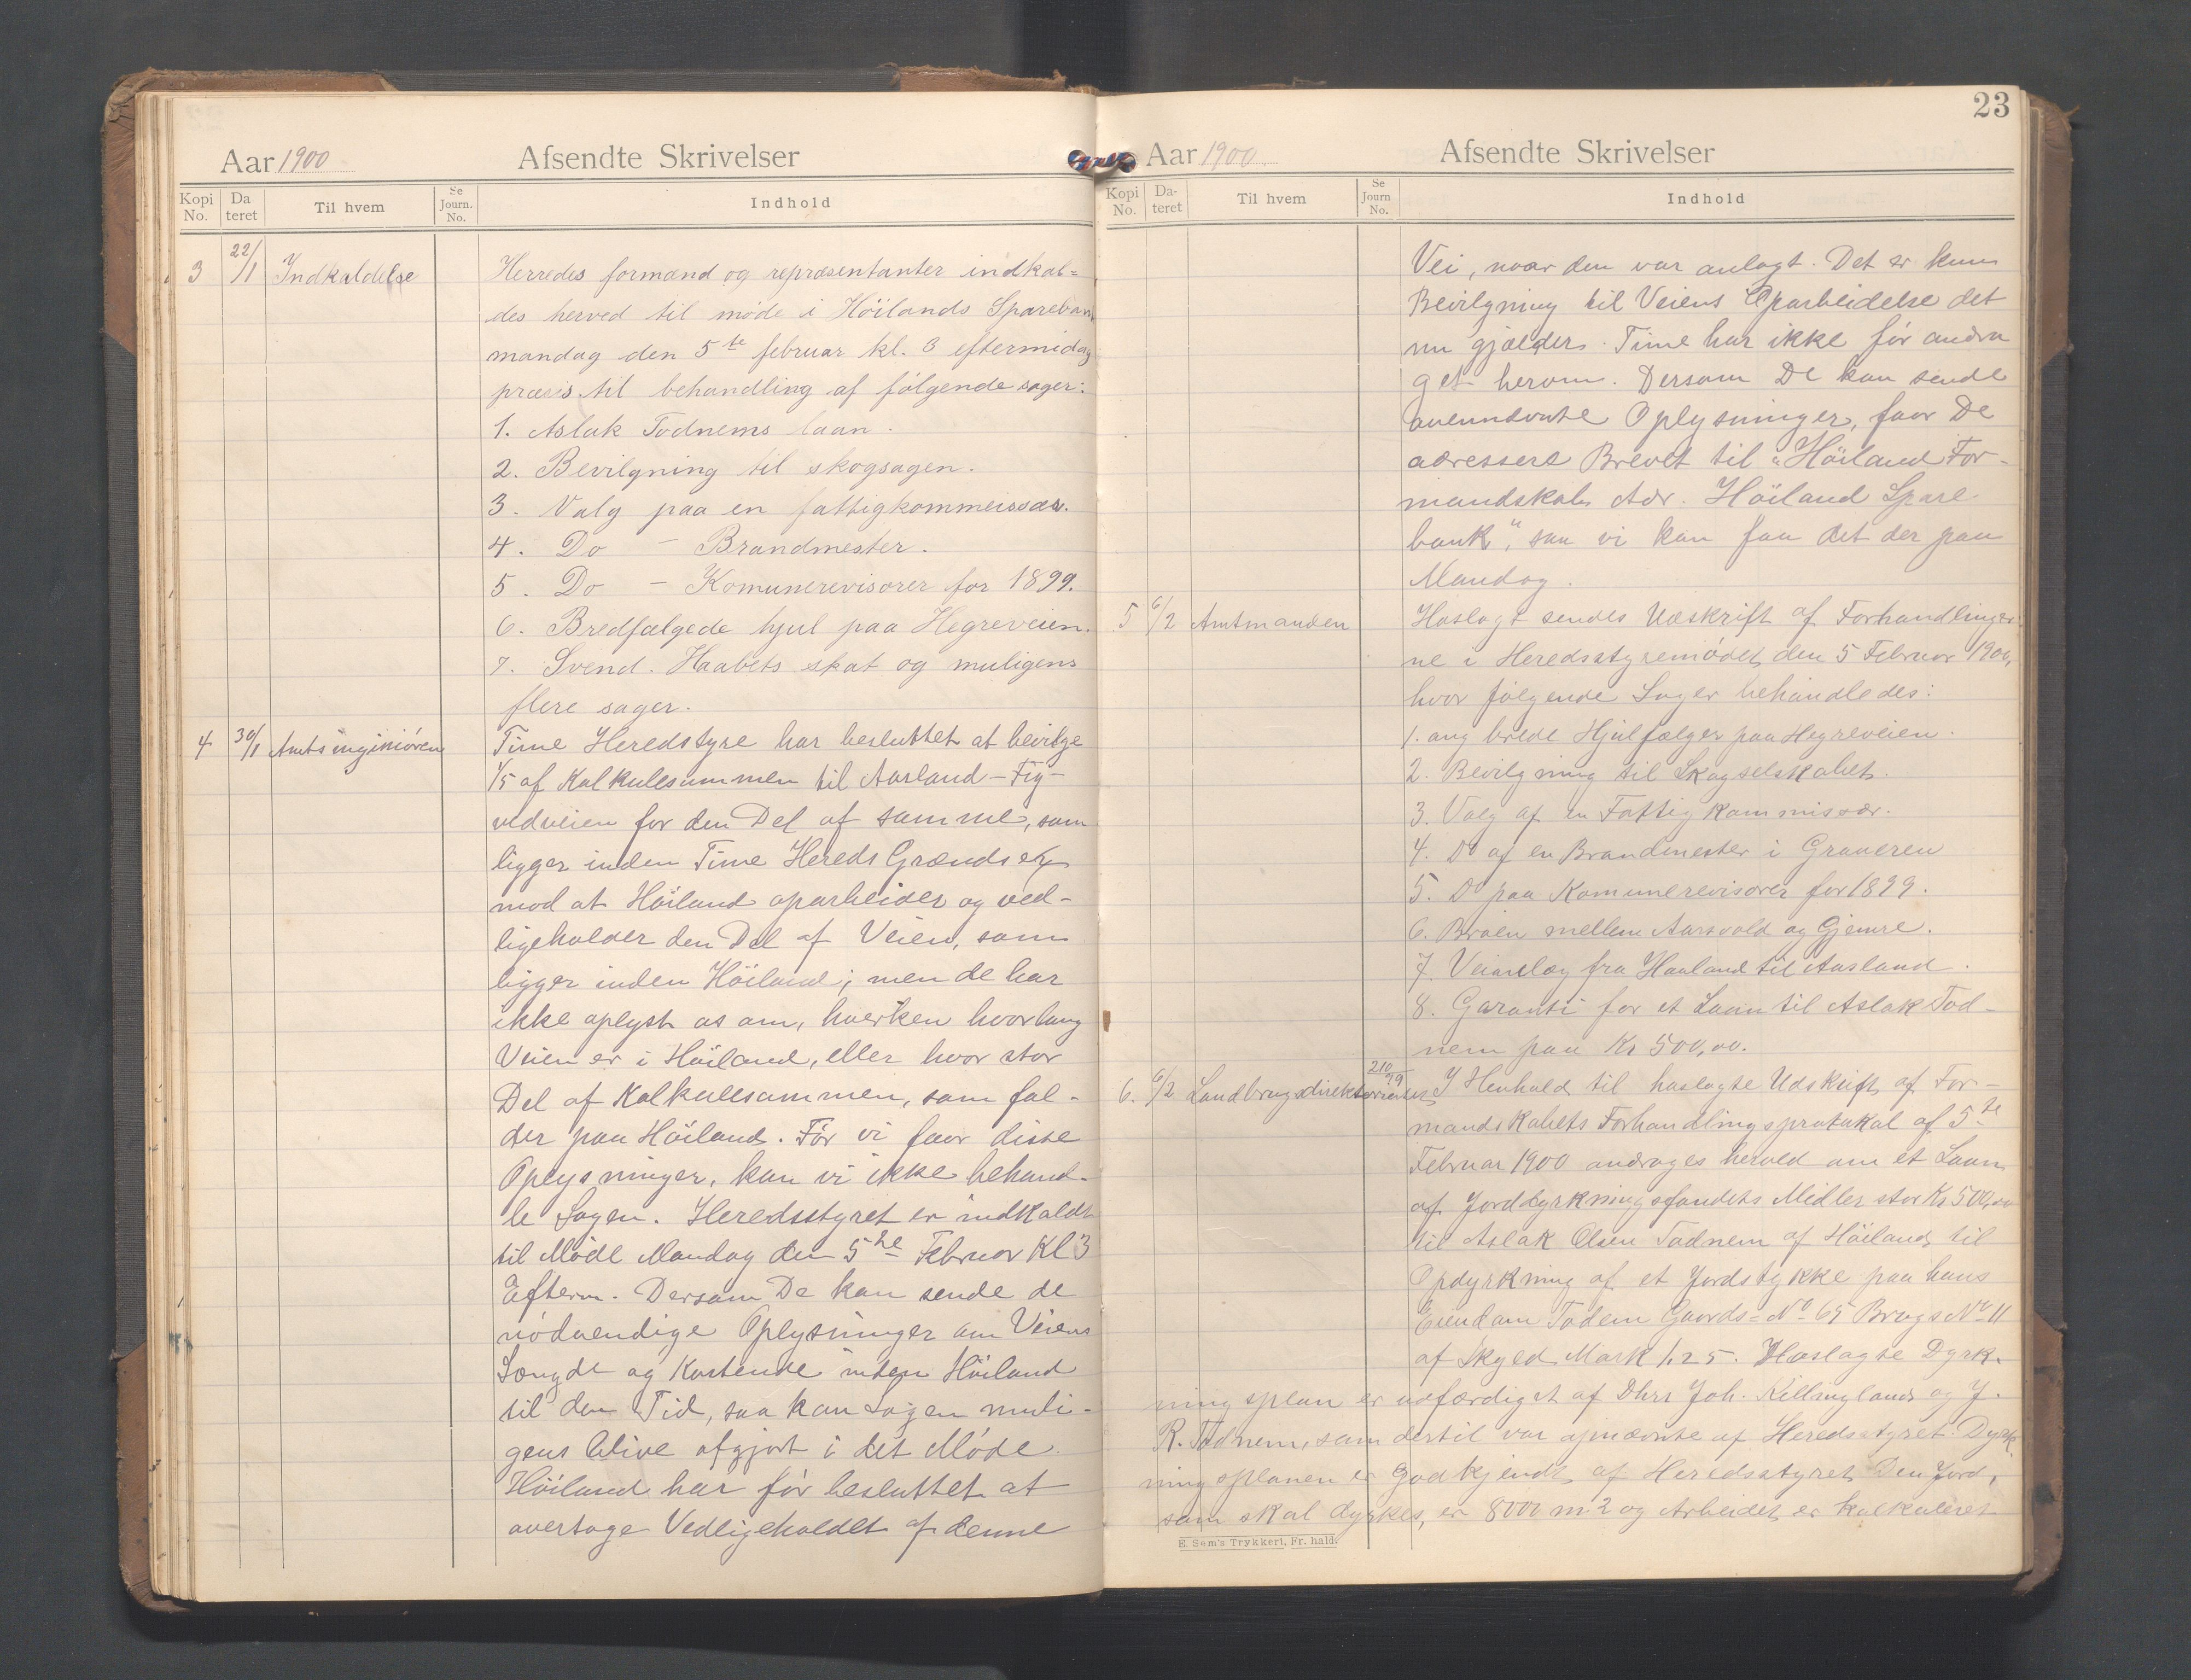 Aar 1900 Afsendte Skrivelser
Kopi No. Da teret Til hvem Se Journ. No. Indhold
3 22/1 Indkaldelse Herredes formænd og repræsentanter indkal=
des herved til møde i Höilands Spareban
mandag den 5te februar kl. 3 eftermidag
præsis til behandling af følgende sager:
1. Aslak Todnems laan.
2. Bevilgning til skogsagen.
3. Valg paa en fattigkommeissær.
4. Do — Brandmester.
5. Do — Komunerevisorer for 1899.
6. Bredfælgede hjul paa Hegreveien.
7. Svend. Haabets skat og muligens
flere sager.
4 30/1 Amtsinginiören Time Heredstyre har besluttet at bevilge
1/5 af Kalkulesummen til Aarland-Fig-
vedveien for den Del af samme, som
ligger inden Time Hereds Grændser
mod at Höiland oparbeider og ved-
ligeholder den Del af Veien, som
ligger inden Höiland; men de har
ikke oplyst os om, hverken hvor lang
Veien er i Höiland, eller hvor stor
Del af Kalkulesummen, som fal-
der paa Höiland. Før vi faar disse
Oplysninger, kan vi ikke behand-
le Sagen. Heredsstyret er indkaldt
til Møde Mandag den 5te Februar Kl 3
Efterm. Dersom De kan sende de
nödvendige Oplysninger om Veiens
Længde og Kostende inden Höiland
til den Tid, saa kan Sagen muli-
gens blive afgjort i det Møde.
Höiland har før besluttet at
overtage Vedligeholdet af denne
23
Aar 1900 Afsendte Skrivelser
Kopi No. Da- teret Til hvem Se Journ No. Indhold
Vei, naar den var anlagt. Det er kun
Bevilgning til Veiens Oparbeidelse det
nu gjælder. Time har ikke før andra
get herom. Dersom De kan sende
ovennævnte Oplysninger, faar De
adressere Brevet til "Höiland For-
mandskab Adr. Höiland Spare-
bank", saa vi kan faa det der paa
Mandag.
5 6/2 Amtmanden Hoslagt sendes Udskrift af Forhandlinger
ne i Heredsstyremödet den 5 Februar 1900,
hvor følgende Sager behandledes:
1. ang brede Hjulfælger paa Hegreveien.
2. Bevilgning til Skogselskabet.
3. Valg af en Fattigkommissær.
4. Do af en Brandmester i Graveren
5. Do paa Komunerevisorer for 1899.
6. Broen mellem Aarsvold og Gjemre.
7. Veianlæg fra Haaland til Aasland.
8. Garanti for et Laan til Aslak Tod-
nem paa Kr 500,00.
6. 6/2 Landbrugsdirektøren 210/99 I Henhold til hoslagte Udskrift af For-
mandskabets Forhandlingsprotokol af 5te
Februar 1900 andrages herved om et Laan
af Jorddyrkningsfondets Midler stor Kr 500,00
til Aslak Olsen Todnem af Höiland til
Opdyrkning af et Jordstykke paa hans
Eiendom Todem Gaards-No 65 Brugs No 11
af Skyld Mark 1,25. Hoslagte Dyrk-
ningsplan er udfærdiget af Dhrr Joh. Killingland og J.
R. Todnem, som dertil var opnævnte af Heredsstyret. Dyrk
ningsplanen er godkjendt af Heredsstyret. Den Jord,
som skal dyrkes, er 8000 m2 og Arbeidet er kalkuleret
E. Sem's Trykkeri, Fr. hald.